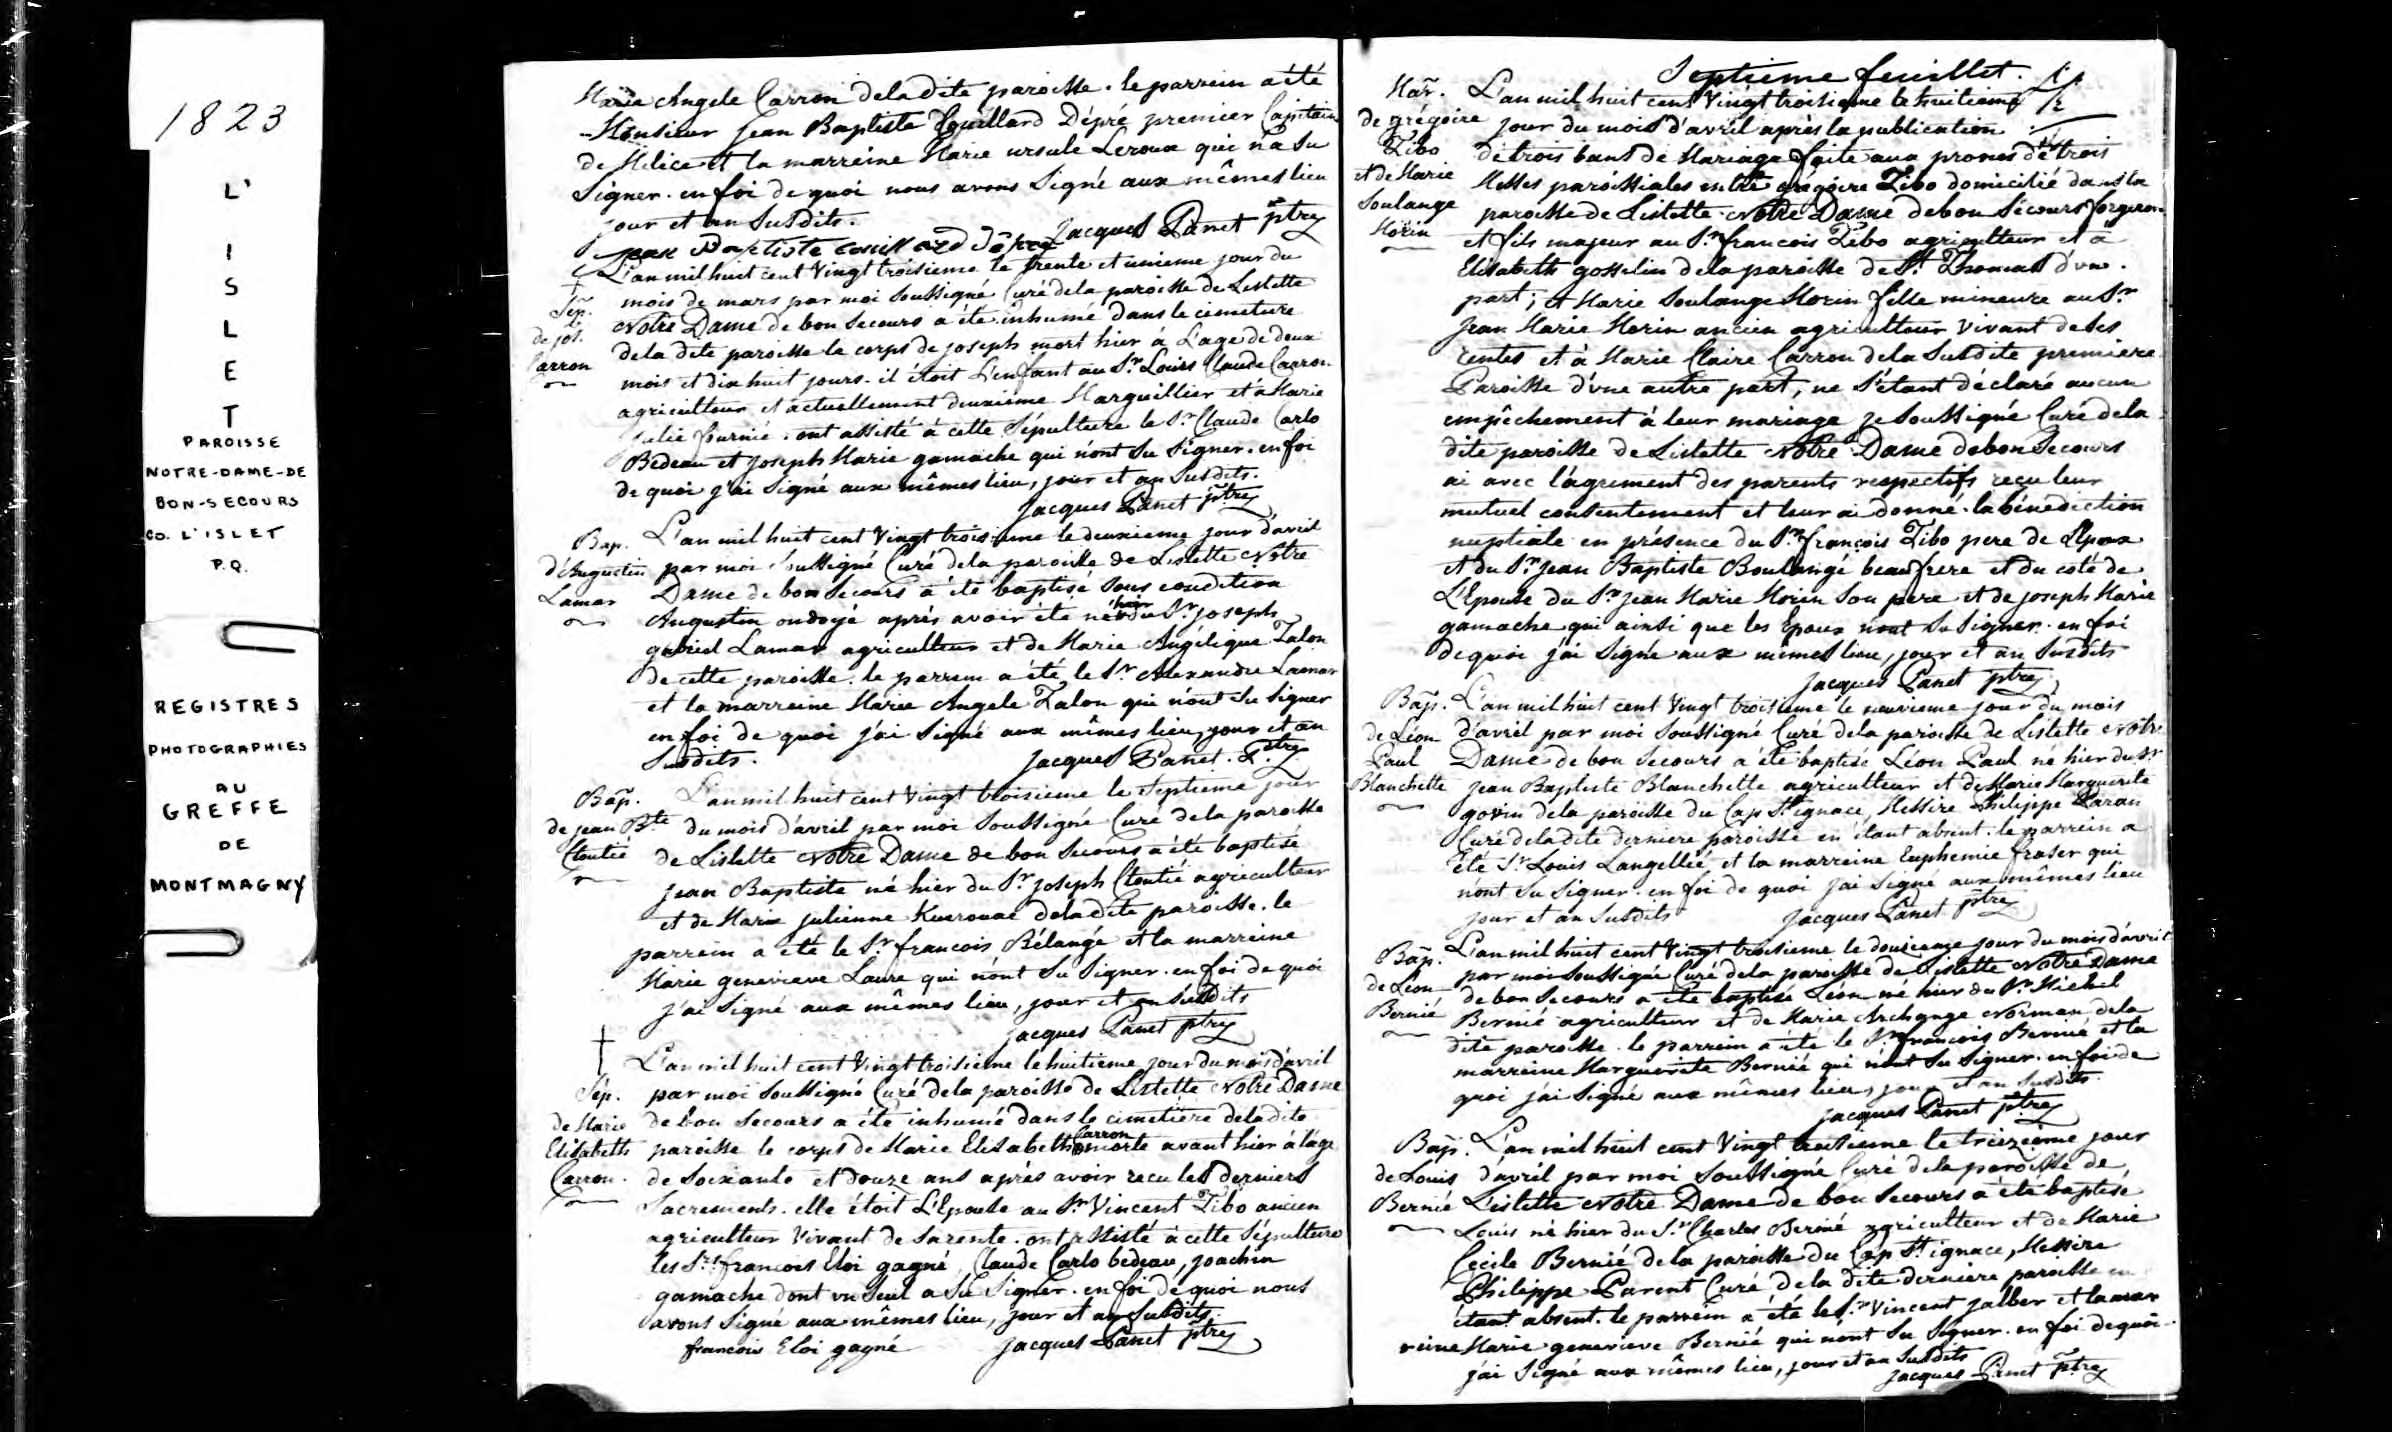 1823
L'
I
S
L
E
T
PAROISSE
NOTRE-DAME-DE
BON-SECOURS
CO. L'ISLET
P.Q.
REGISTRES
PHOTOGRAPHIES
AU
GREFFE
DE
MONTMAGNY
Marie Angele Carron dela dite paroisse. le parrein a été
Monsieur Jean Baptiste Couillard Dépré premier Capitain
de Milice et la marreine Marie ursule Leroux qui n'a Su
Signer. en foi de quoi nous avons Signé aux mêmes lieu
jour et an Susdits.
Jacques Panet ptre
jean Baptiste couillard Dépré
L'an mil huit cent Vingt troisieme le trente et unieme jour du
Sép. de jos. Carron
mois de mars par moi Soussigné Curé dela paroisse de Lislette
Notre Dame de bon Secours a été inhumé dans le cimetiere
dela dite paroisse le corps de joseph mort hier à L'age de deux
mois et dix huit jours. il étoit L'enfant au Sr Louis Claude Carron
agriculteur et actuellement deuxieme Marguillier et à Marie
julie fournié. ont assisté à cette Sépulture le Sr Claude Carlo
Bedeau et joseph Marie gamache qui n'ont Su Signer. en foi
de quoi j'ai Signé aux mêmes lieu, jour et an Susdits.
Jacques Panet ptre
Bap. d'Augustin Lamar
L'an mil huit cent Vingt troisieme le deuxieme jour d'avril
par moi Soussigné Curé dela paroisse de Lislette Notre
Dame de bon Secours a été baptisé Sous condition
Augustin ondoyé après avoir été né hier du Sr joseph
gabriel Lamar agriculteur et de Marie Angélique Talon
de cette paroisse. le parrein a été le Sr Alexandre Lamar
et la marreine Marie Angele Talon qui n'ont Su Signer
en foi de quoi j'ai Signé aux mêmes lieu, jour et an
Susdits.
Jacques Panet. Ptre
Bap. de jean Bte Cloutié
L'an mil huit cent Vingt troisieme le Septieme jour
du mois d'avril par moi Soussigné Curé dela paroisse
de Lislette Notre Dame de bon Secours a été baptisé
Jean Baptiste né hier du Sr joseph Cloutié agriculteur
et de Marie julienne Kuerouac dela dite paroisse. le
parrein a été le Sr francois Bélangé et la marreine
Marie genevieve Laure qui n'ont Su Signer. en foi de quoi
j'ai Signé aux mêmes lieu, jour et an Susdits
jacques Panet ptre
L'an mil huit cent Vingt troisieme le huitieme jour du mois d'avril
Sép. de Marie Elisabeth Carron.
par moi Soussigné Curé dela paroisse de Lislette Notre Dame
de bon Secours a été inhumé dans le cimetiere dela dite
paroisse le corps de Marie Elisabeth Carron morte avant hier à l'age
de Soixante et douze ans après avoir recu les derniers
Sacrements. elle étoit L'Epouse au Sr Vincent Tibo ancien
agriculteur Vivant de Sa rente. ont assisté à cette Sépulture
les Srs francois Eloi gagné, Claude Carlo bedeau, joachim
gamache dont un Seul a Su Signer. en foi de quoi nous
avons Signé aux mêmes lieu, jour et an Susdits.
francois Eloi gagné Jacques Panet ptre
Septieme feuillet.
Mar. de grégoire Tibo et de Marie Soulange Morin
L'an mil huit cent Vingt troisieme le huitieme
jour du mois d'avril après la publication
de trois bans de Mariage faite aux prones de trois
Messes paroissiales entre grégoire Tibo domicilié dans la
paroisse de Lislette Notre Dame de bon Secours forgeron
et fils majeur au Sr francois Tibo agriculteur et à
Elisabeth gosselin dela paroisse de St Thomas d'une
part; et Marie Soulange Morin fille mineure au Sr
Jean Marie Morin ancien agriculteur Vivant de Ses
rentes et à Marie Claire Carron dela Susdite premiere
Paroisse d'une autre part; ne S'étant déclaré aucun
empêchement à leur mariage je Soussigné Curé dela
dite paroisse de Lislette Notre Dame de bon Secours
ai avec l'agrement des parents respectifs reçu leur
mutuel consentement et leur ai donné la bénédiction
nuptiale en présence du Sr françois Tibo pere de L'Epoux
et du Sr Jean Baptiste Boulangé beaufrere et du coté de
L'Epouse du Sr jean Marie Morin Son pere et de joseph Marie
gamache qui ainsi que les Epoux n'ont Su Signer. en foi
de quoi j'ai Signé aux mêmes lieu, jour et an Susdits
Jacques Panet ptre
Bap. de Léon Paul Blanchette
L'an mil huit cent Vingt troisieme le neuvieme jour du mois
d'avril par moi Soussigné Curé dela paroisse de Lislette Notre
Dame de bon Secours a été baptisé Léon Paul né hier du Sr
jean Baptiste Blanchette agriculteur et de Marie Marguerite
govin dela paroisse du Cap St ignace, Messire Philippe Paran
Curé dela dite derniere paroisse en étant absent. le parrein a
été Sr Louis Langellié et la marreine Euphemie fraser qui
n'ont Su Signer. en foi de quoi j'ai Signé aux mêmes lieu
jour et an Susdits Jacques Panet ptre
Bap. de Léon Bernié
L'an mil huit cent Vingt troisieme le douzieme jour du mois d'avril
par moi Soussigné Curé dela paroisse de Lislette Notre Dame
de bon Secours a été baptisé Léon né hier du Sr Michel
Bernié agriculteur et de Marie Archange Norman dela
dite paroisse. le parrein a été le Sr francois Bernié et la
marreine Marguerite Bernié qui n'ont Su Signer. en foi de
quoi j'ai Signé aux mêmes lieu, jour et an Susdits.
Jacques Panet ptre
Bap. de Louis Bernié
L'an mil huit cent Vingt troisieme le treizieme jour
d'avril par moi Soussigné Curé dela paroisse de
L'islette Notre Dame de bon Secours a été baptisé
Louis né hier du Sr Charles Bernié agriculteur et de Marie
Cecile Bernié dela paroisse du Cap St ignace, Messire
Philippe Parent Curé dela dite derniere paroisse en
étant absent. le parrein a été le Sr Vincent jalber et la mar
reine Marie genevieve Bernié qui n'ont Su Signer. en foi de quoi
j'ai Signé aux mêmes lieu, jour et an Susdits
Jacques Panet ptre